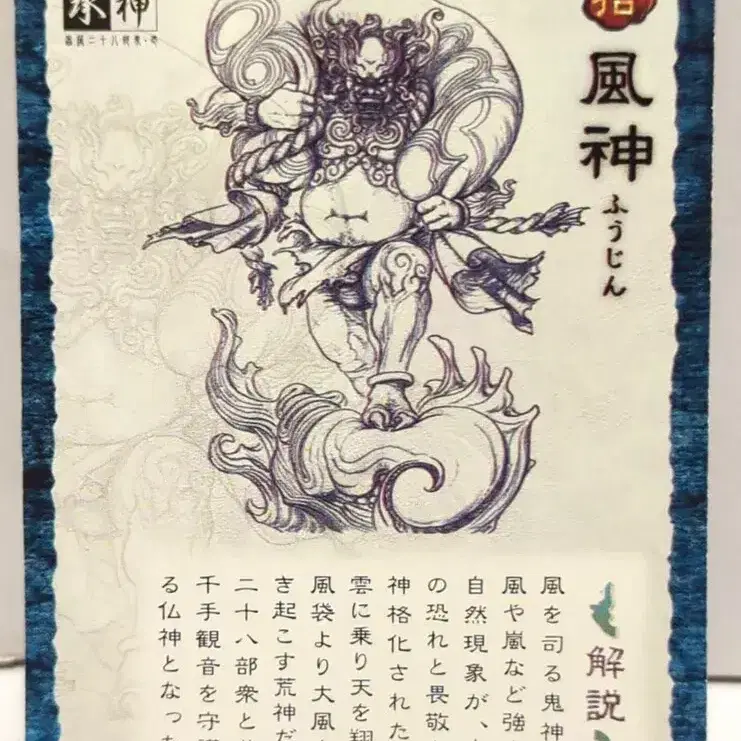 神
拾
風神
ふうじん
解説
風を司る鬼神
風や嵐など強
自然現象が、
の恐れと畏敬
神格化された
雲に乗り天を翔
風袋より大風
き起こす荒神だ
二十八部衆と
千手観音を守護
る仏神となっ